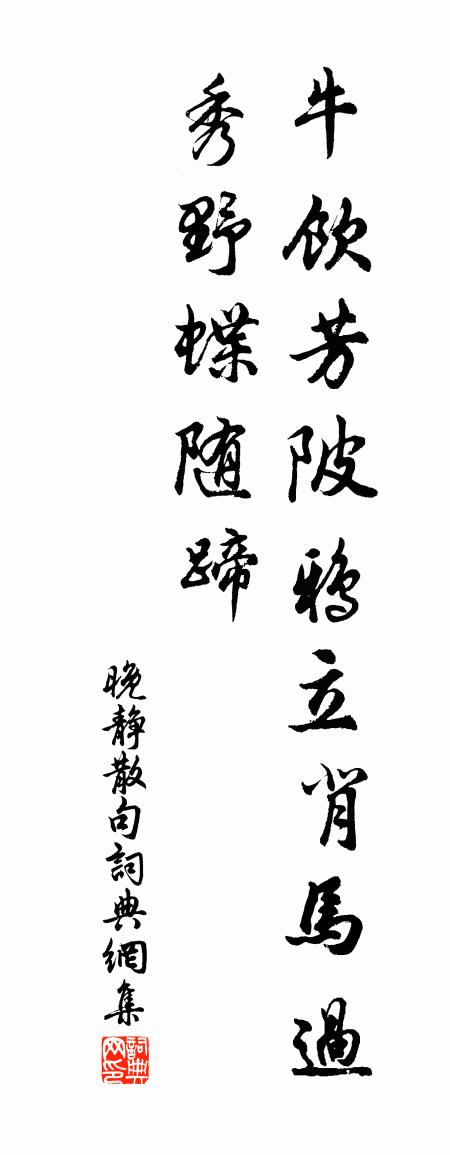 牛飲芳陂鴉立背馬過
秀野蝶随蹄
晚靜散句詞典網集
詞典网印